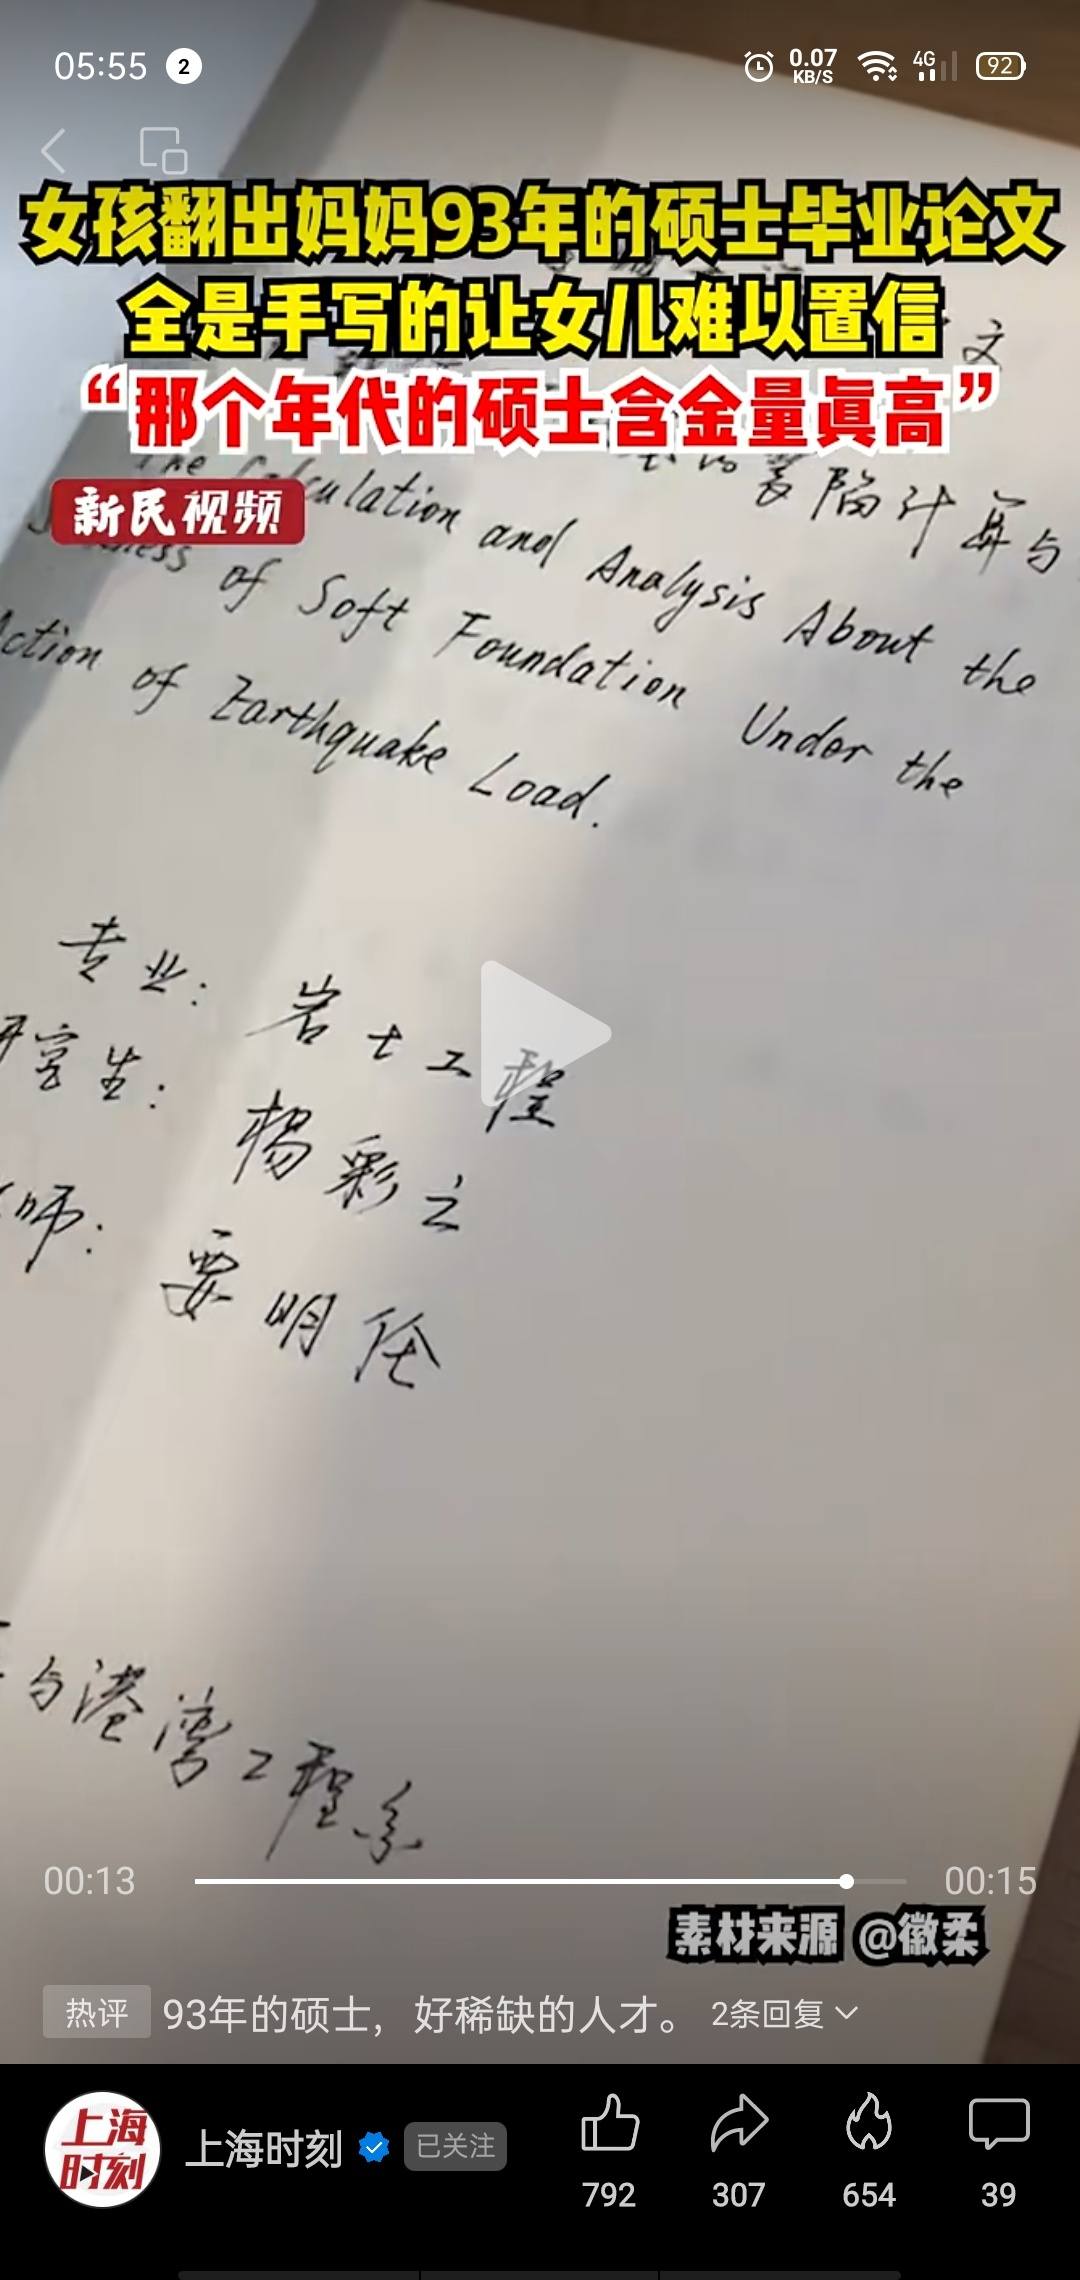 05:55 2 0.07 KB/S 4G 92
女孩翻出妈妈93年的硕士毕业论文
全是手写的让女儿难以置信
“那个年代的硕士含金量真高”
文
新民视频
陷计算与
The Calculation and Analysis About the
of Soft Foundation Under the
Action of Earthquake Load.
专业: 岩土工程
研究生: 杨彩云
师: 要明伦
与港湾工程系
00:13 00:15
素材来源 @徽柔
热评 93年的硕士，好稀缺的人才。 2条回复
上海时刻 上海时刻 已关注
792 307 654 39